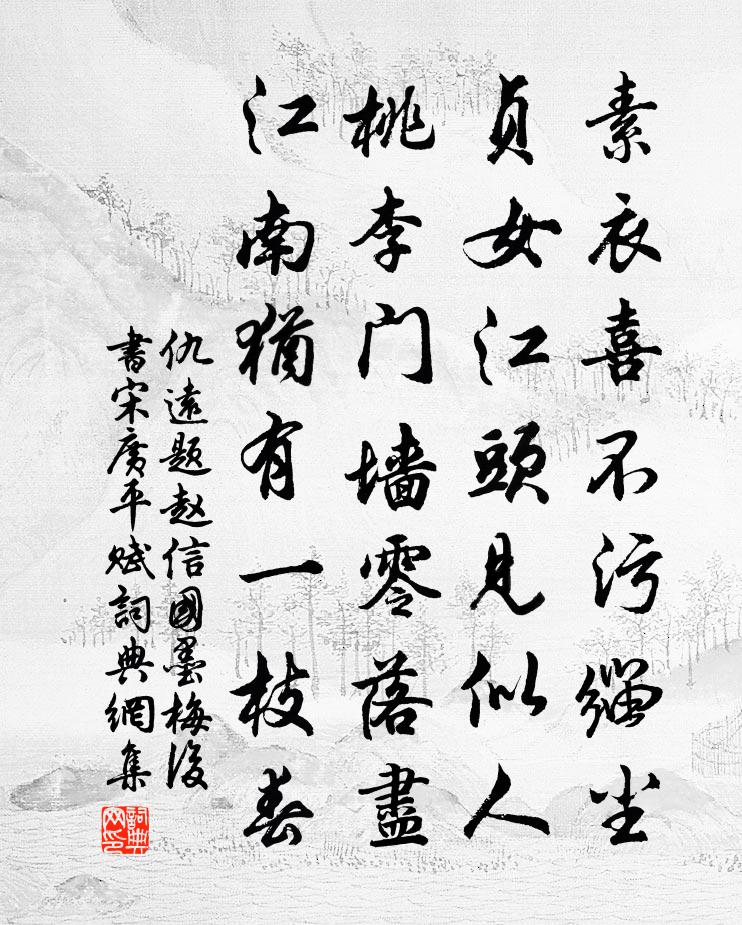 素衣喜不污缁尘
贞女江頭見似人
桃李门墙零落盡
江南猶有一枝春
仇遠题赵信國墨梅後
書宋廣平赋詞典網集
詞典
网印